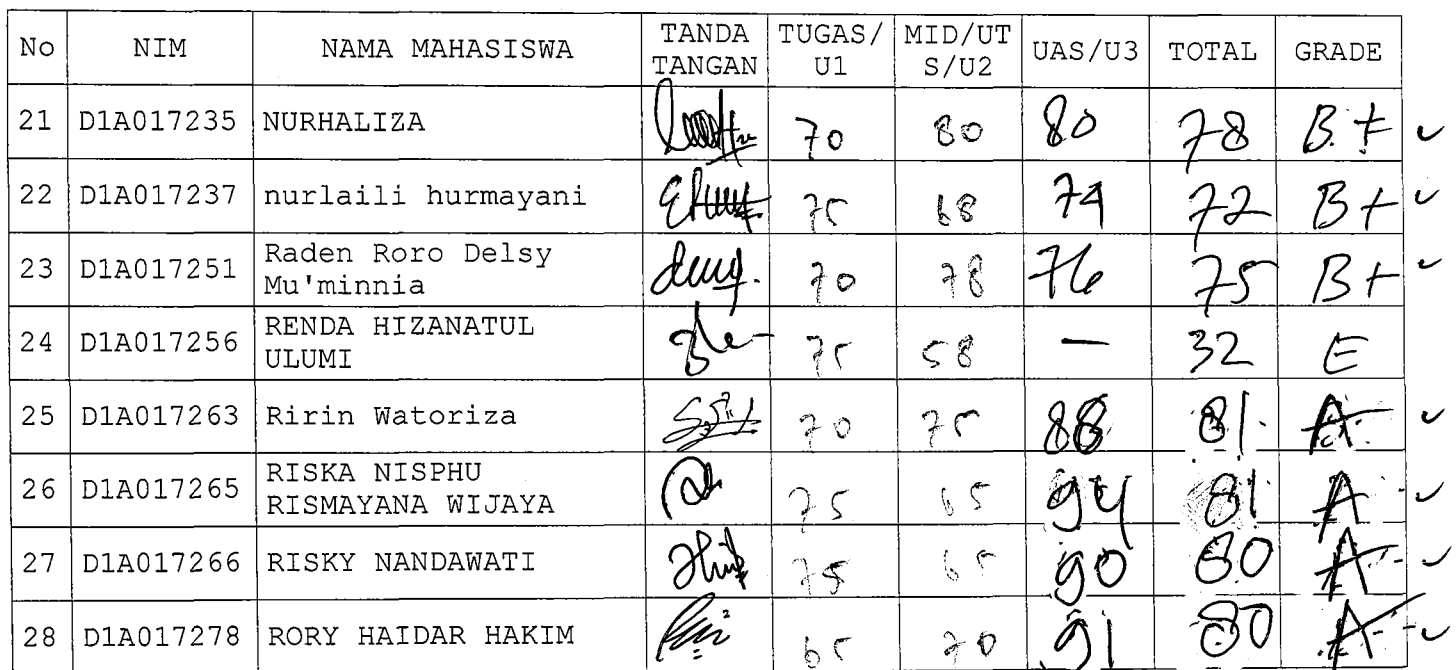 No NIM NAMA MAHASISWA TANDA TANGAN TUGAS/U1 MID/UTS/U2 UAS/U3 TOTAL GRADE
21 D1A017235 NURHALIZA 70 80 80 78 B+
22 D1A017237 nurlaili hurmayani 75 68 74 72 B+
23 D1A017251 Raden Roro Delsy Mu'minnia 70 78 76 75 B+
24 D1A017256 RENDA HIZANATUL ULUMI 75 58 — 32 E
25 D1A017263 Ririn Watoriza 70 75 88 81 A
26 D1A017265 RISKA NISPHU RISMAYANA WIJAYA 75 65 94 81 A
27 D1A017266 RISKY NANDAWATI 75 65 90 80 A
28 D1A017278 RORY HAIDAR HAKIM 65 70 91 80 A